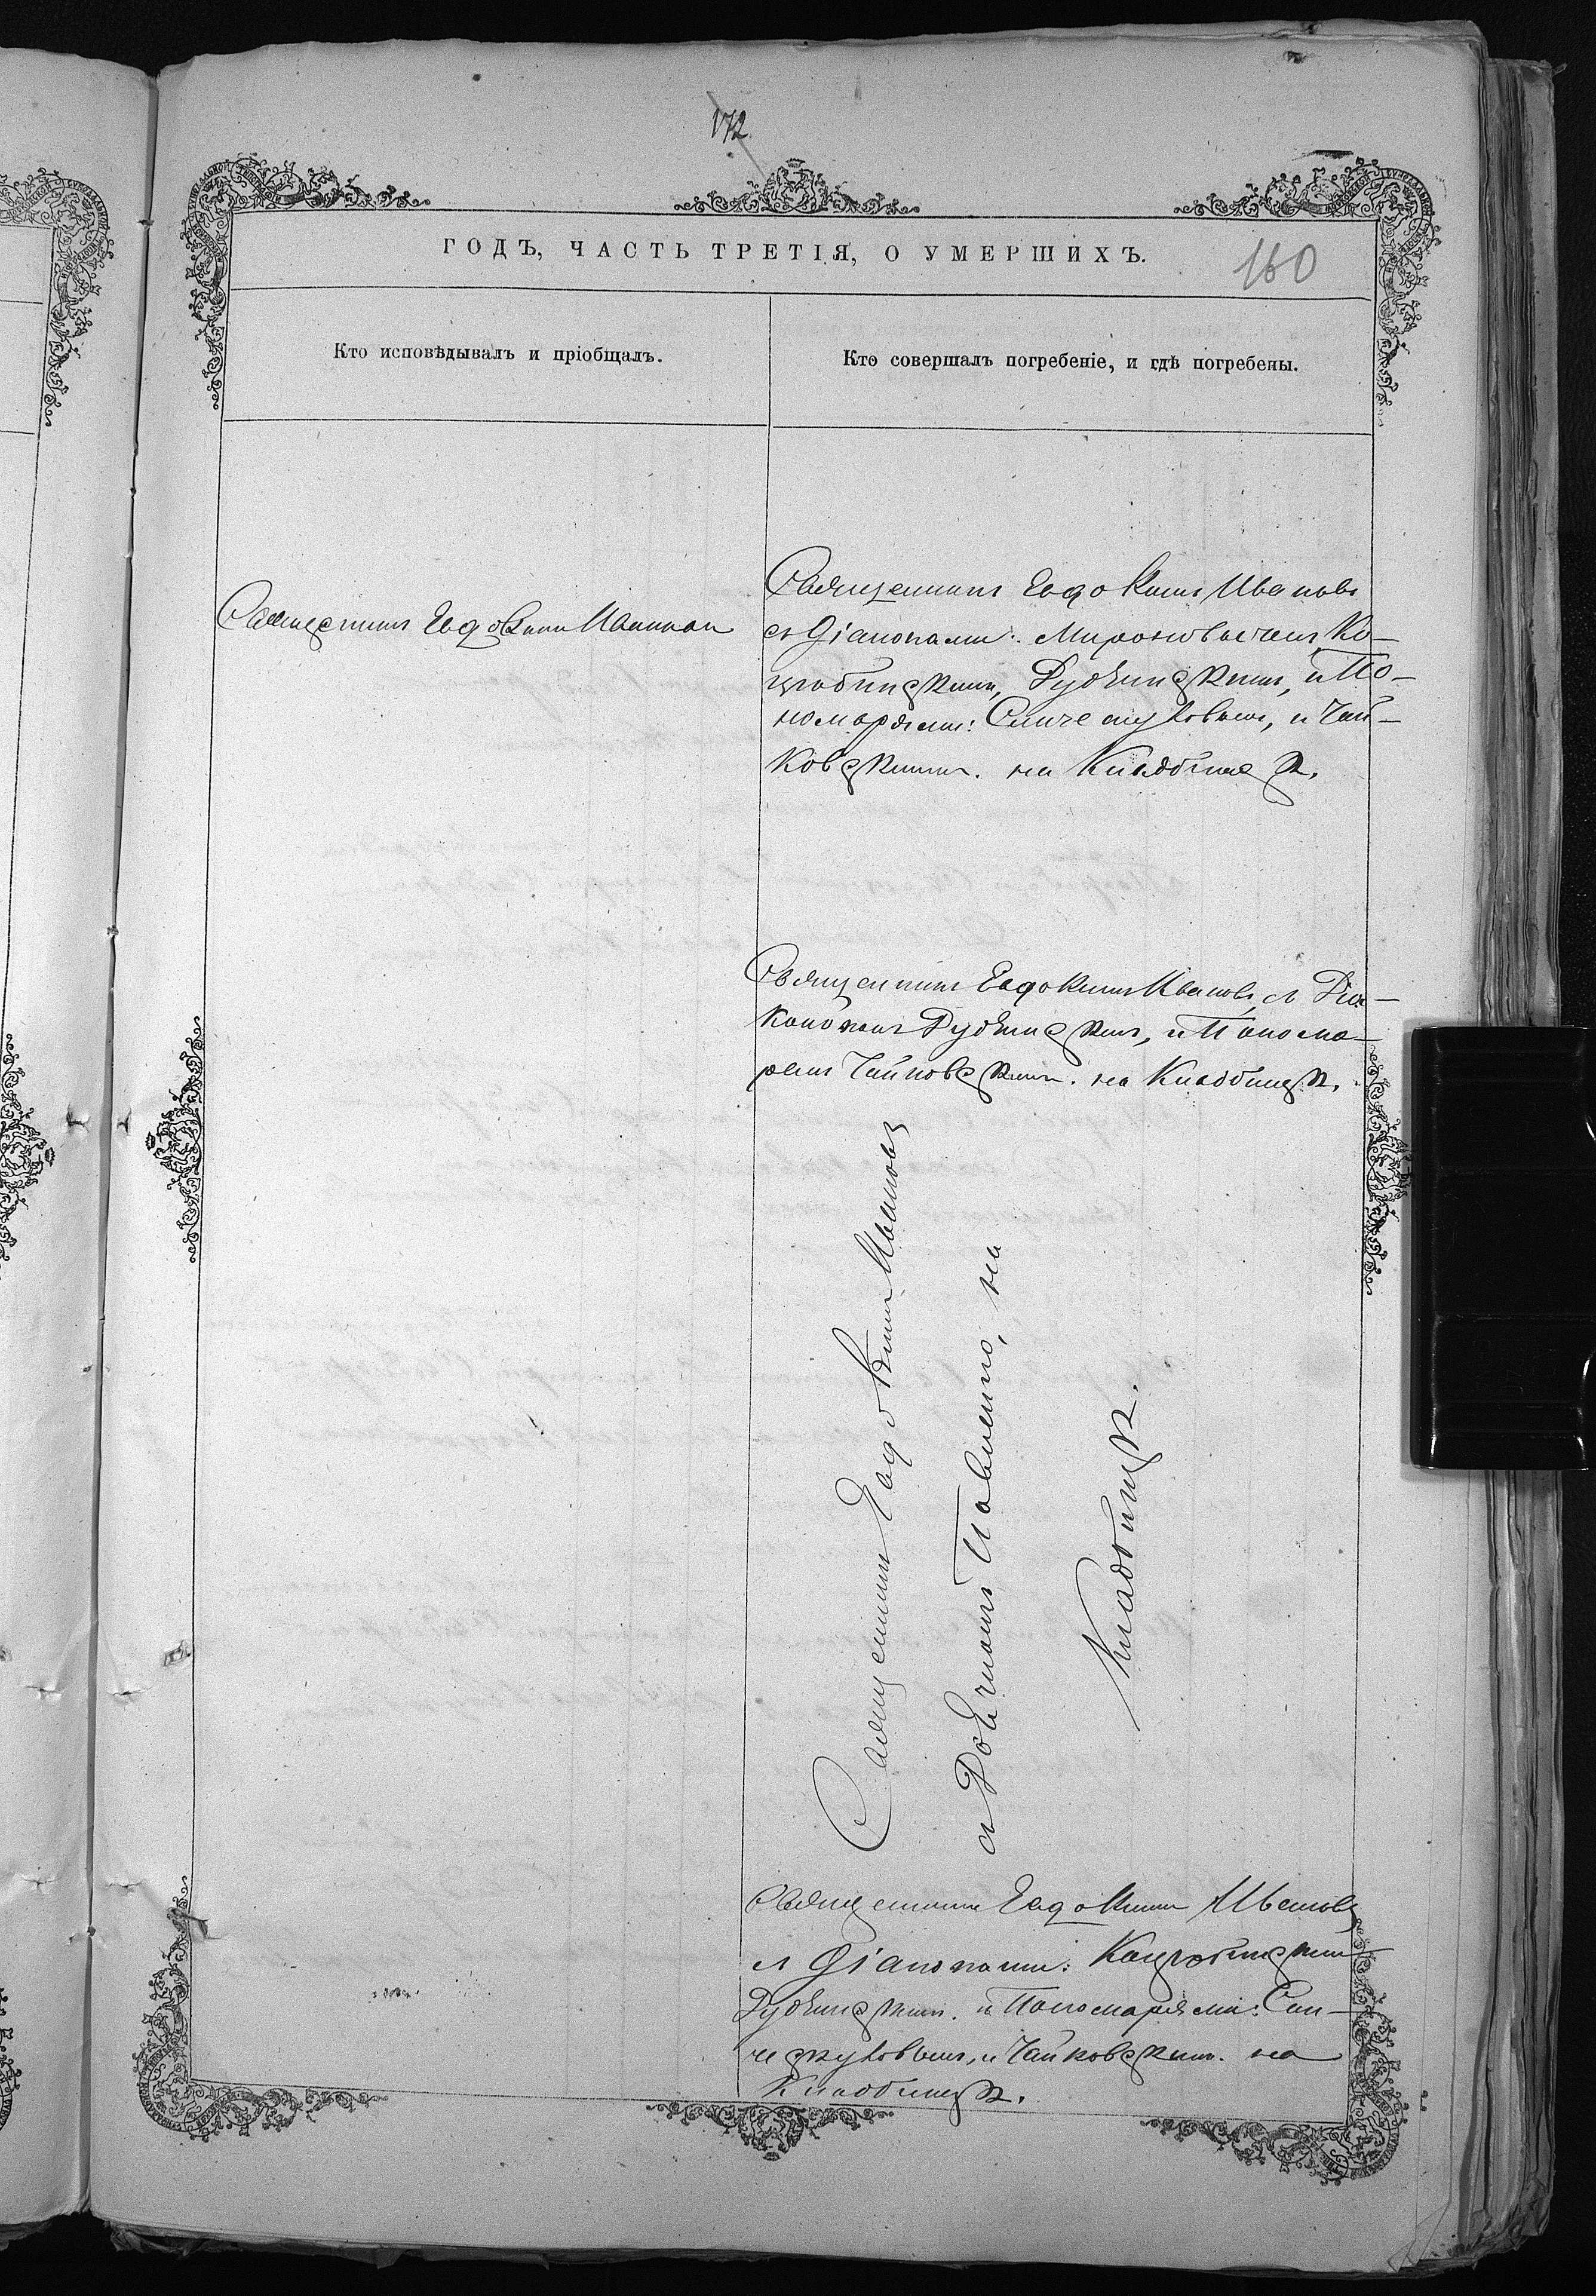 172
ГОДЪ, ЧАСТЬ ТРЕТІЯ, О УМЕРШИХЪ.
160
Кто исповѣдывалъ и пріобщалъ.
Кто совершалъ погребеніе, и гдѣ погребены.
Священникъ Евдокимъ Ивановъ
Священникъ Евдокимъ Ивановъ
съ Діаконами: Мироновичемъ, Ко-
цюбинскимъ, Дубинскимъ, и По-
номарями: Синчеруковымъ, и Чай-
ковскимъ. на Кладбищѣ.
Священникъ Евдокимъ Ивановъ, съ Діа-
кономъ Дубинскимъ, и Понома-
ремъ Чайковскимъ. на Кладбищѣ.
Священникъ Евдокимъ Ивановъ
съ Павленко, на
Кладбищѣ.
Священникъ Евдокимъ Ивановъ
съ Діаконами: Коцюбинскимъ
Дубинскимъ. и Пономарями: Син-
черуковымъ, и Чайковскимъ. на
Кладбищѣ.